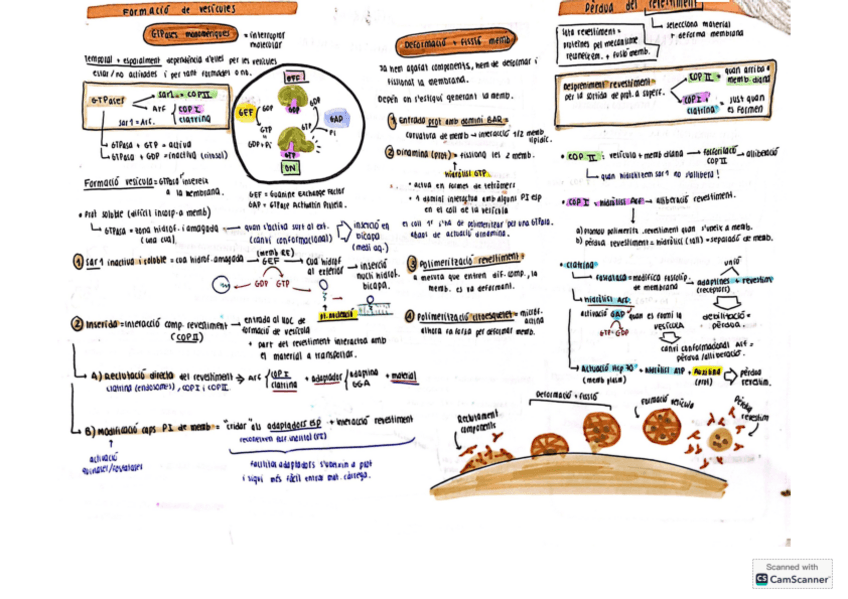 Formació de vesícules
GTPases monomèriques = interruptor
molecular
temporal + espacialment dependència d'elles per les vesícules
estar/no activades i per tant formades o no.
GTPases
sar1 → COP II
Arf
COP I
clatrina
sar1 = Arf.
GTPasa + GTP = activa
GTPasa + GDP = inactiva (citosol)
OFF
GDP
GEF
GDP
GTP
GDP + Pi
GDP
GTP
Pi
GAP
GTP
ON
GEF = Guanine Exchange Factor
GAP = GTPase Activation Protein.
Formació vesícula = GTPasa s'insereix
a la membrana.
• Prot soluble (difícil incorp. a memb)
GTPasa = zona hidrof. i amagada
(una cua).
quan s'activa surt al ext.
(canvi conformacional)
inserció en
bicapa
(medi aq.)
① Sar 1 inactiva i soluble = cua hidrof. amagada
(memb RE)
GEF
GDP GTP
cua hidrof
al exterior
inserció
nucli hidrof.
bicapa.
② Inserida = interacció comp. revestiment
(COP II)
entrada al lloc de
formació de vesícula
• part del revestiment interactua amb
el material a transportar.
A) Reclutació directa del revestiment
clatrina (endosomes), COP I i COP II.
Arf
COP I
clatrina
+ adaptador
adaptina
GGA
+ material
B) Modificació caps PI de memb = "cridar" als adaptadors esp + interacció revestiment
activació
quinases/fosfatases
facilitar adaptadors s'uneixin a prot
i sigui més fàcil entrar mat. càrrega.
Deformació + fissió memb.
Ja hem agafat components, hem de deformar i
fissionar la membrana.
Depèn on s'estigui generant la memb.
① Entrada prot amb domini BAR =
curvatura de memb → interacció 1/2 memb
lipídic.
② Dinamina (prot) = fissiona les 2 memb.
hidròlisi GTP
• actua en formes de tetràmers
• 1 domini interactua amb alguns PI esp
en el coll de la vesícula
el coll 1r s'ha de polimeritzar per una GTPasa.
abans de actuació dinamina.
③ Polimerització revestiment =
a mesura que entren dif. comp., la
memb. es va deformant.
④ Polimerització citoesquelet = microf.
actina
alhora fa força per deformar memb.
Pèrdua del revestiment
selecciona material
+ deforma membrana
proteïnes pel mecanisme
reconeixem. + fusió memb.
Despreniment revestiment =
per la sortida de prot. a superf.
COP II = quan arriba a
memb. diana
COP I
clatrina
= just quan
es formen
• COP II: vesícula + memb diana → fosforilació
COP II
→ alliberació
quan hidrolitzem sar 1 no s'allibera!
• COP I = hidròlisi Arf → alliberació revestiment.
• clatrina
fosfatasa = modifica fosfolíp.
de membrana
unió
adaptines + revestim
(receptors)
debilitació =
pèrdua.
hidròlisi Arf:
activació GAP quan es formi la
vesícula
GTP → GDP
canvi conformacional Arf =
pèrdua/alliberació.
Actuació Hsp 70 = hidròlisi ATP + Auxilina
(prot)
pèrdua
revestim.
Reclutament
components
Deformació + fissió
Formació vesícula
Pèrdua
revestim
Scanned with
CS CamScanner